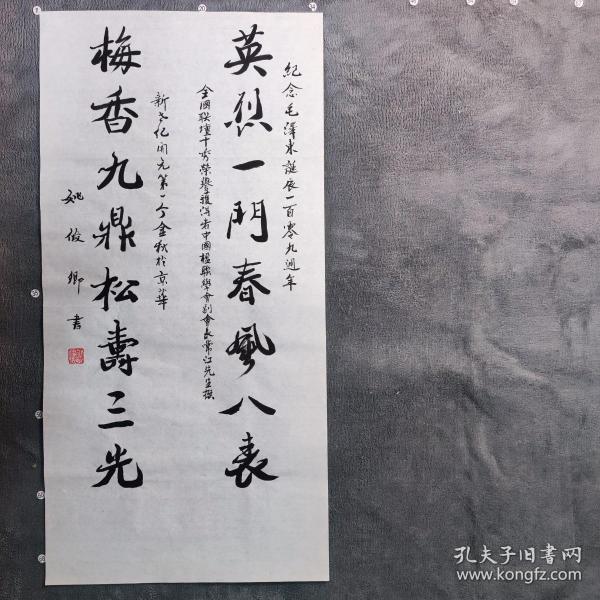 紀念毛澤东誕辰一百零九週年
英烈一門春風八表
全國联壇十秀榮譽獲得者中國楹聯學會副會长常江先生撰
梅香九鼎松壽三光
新世纪開元第一个金秋於京華
姚俊卿書
孔夫子旧書网
www.kongfz.com